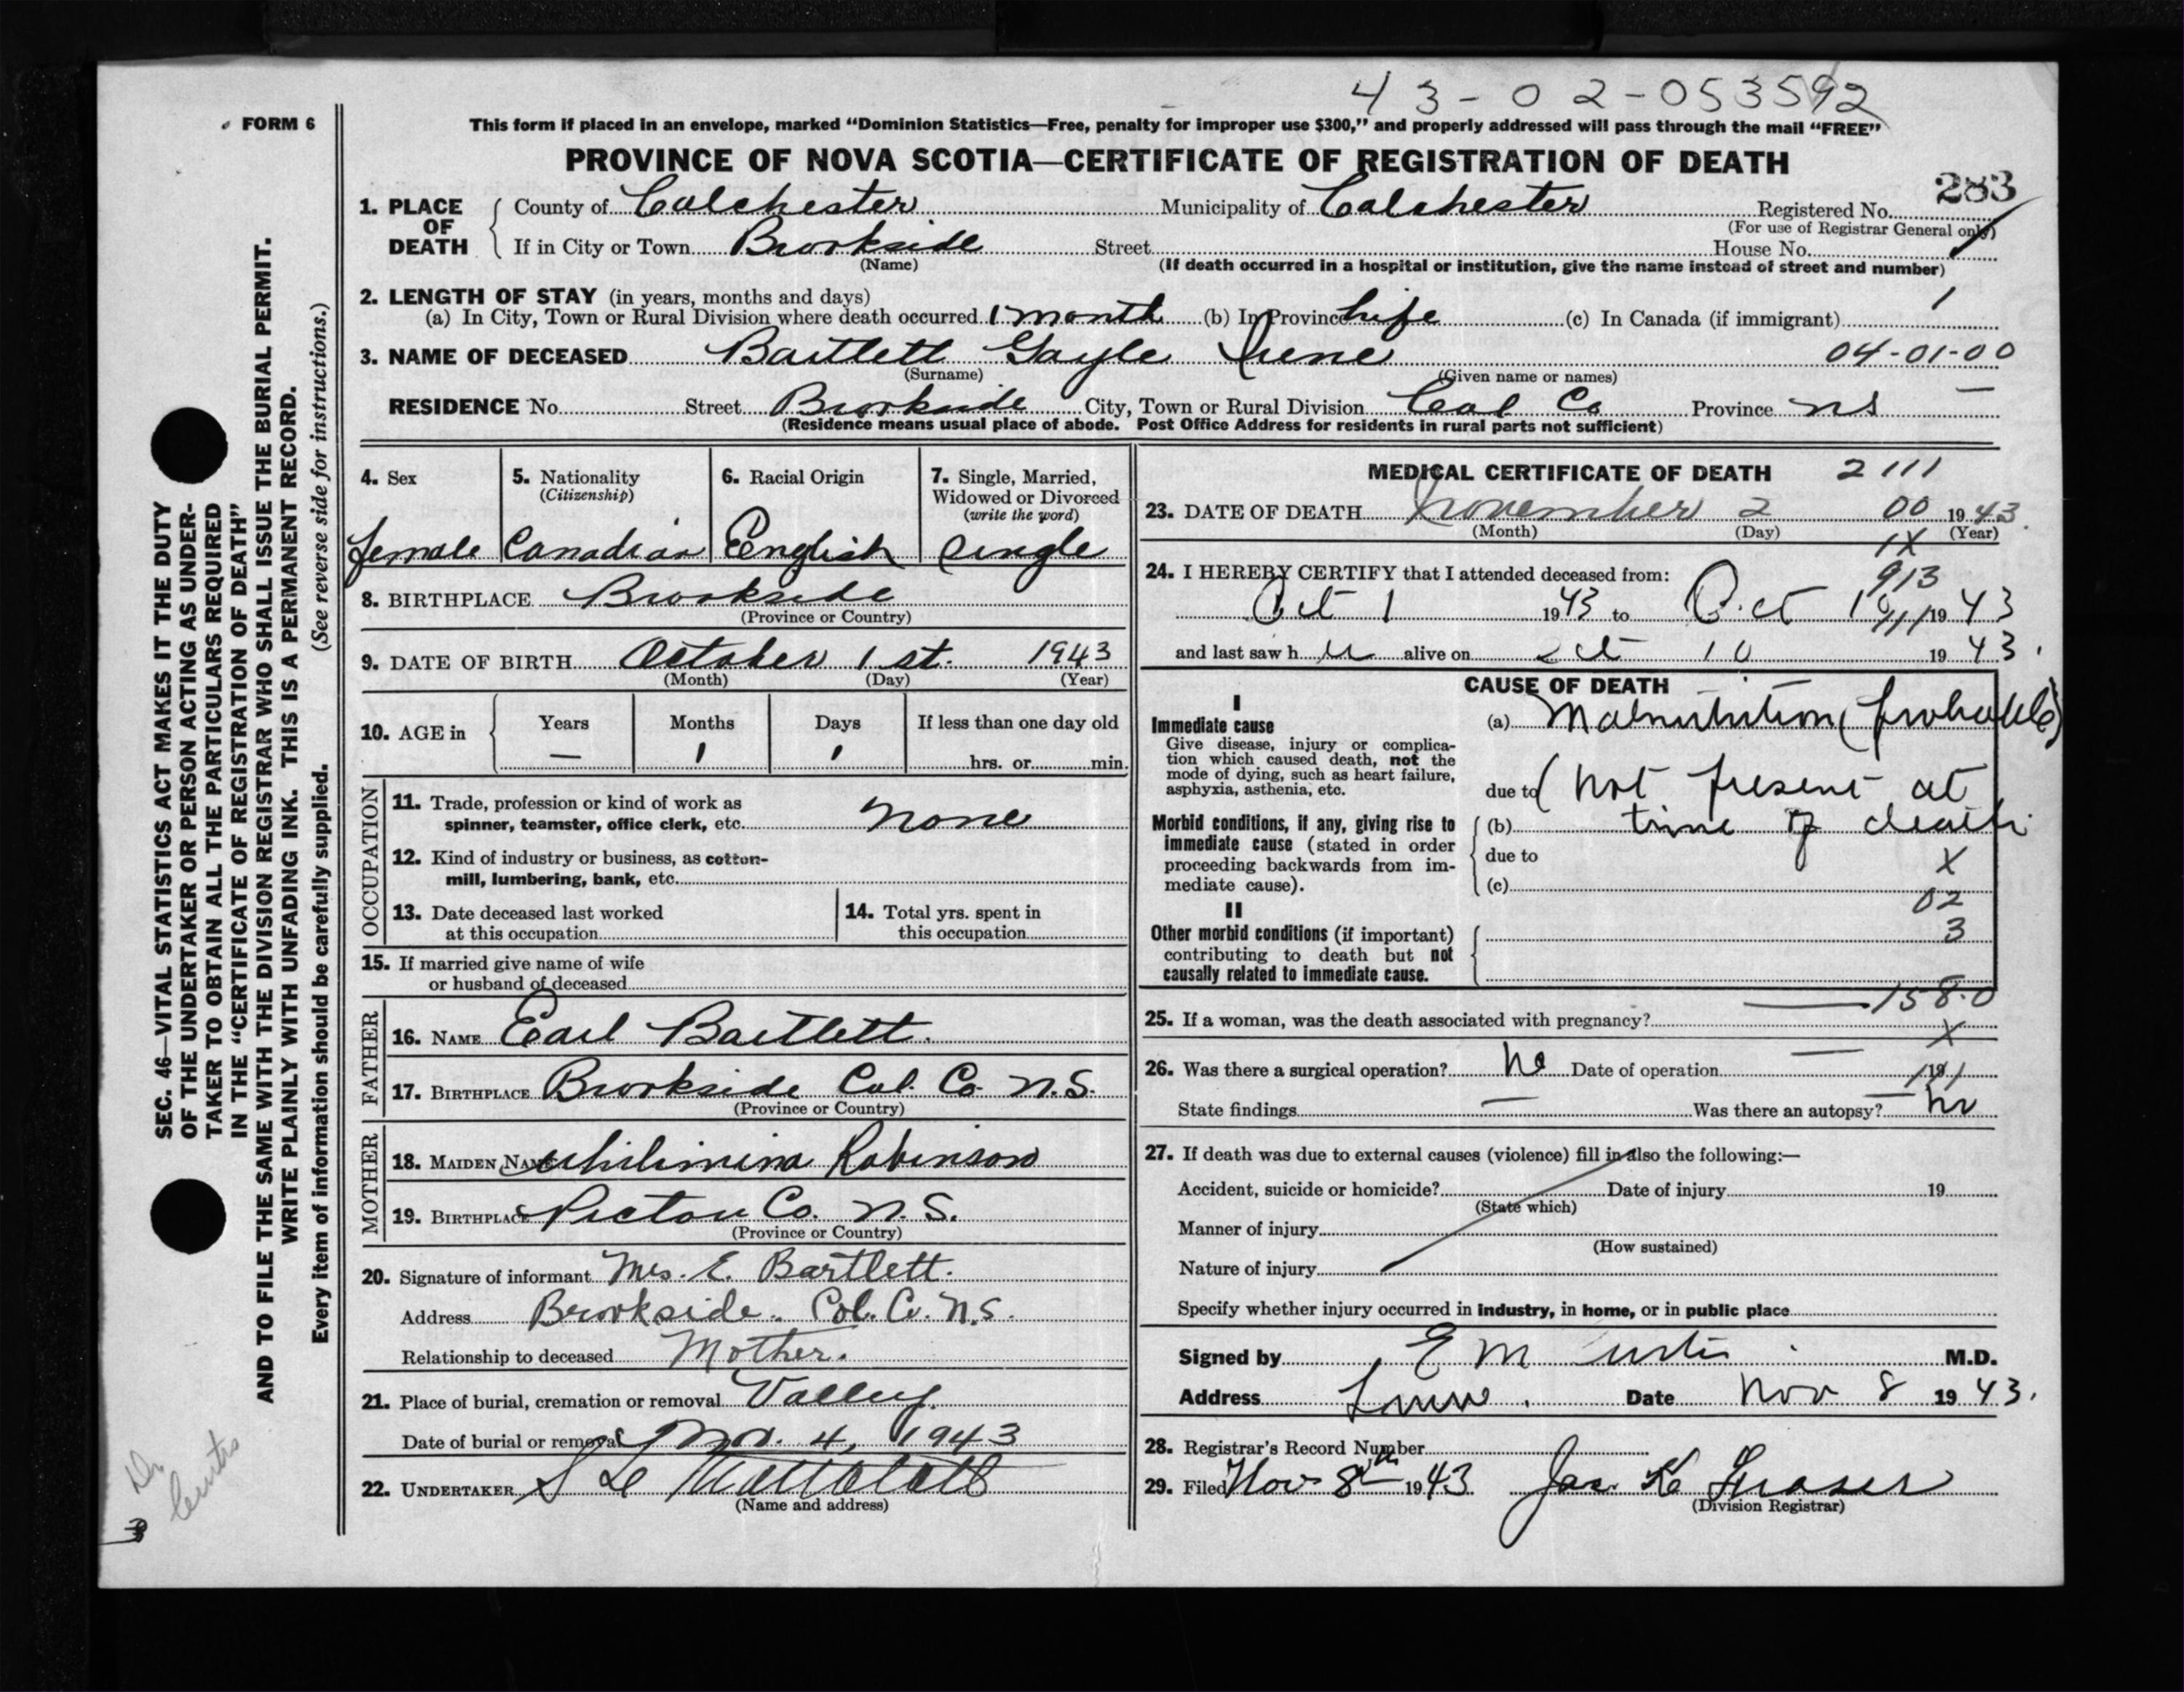 43-02-053592
FORM 6
This form if placed in an envelope, marked "Dominion Statistics—Free, penalty for improper use $300," and properly addressed will pass through the mail "FREE"
PROVINCE OF NOVA SCOTIA—CERTIFICATE OF REGISTRATION OF DEATH
283
1. PLACE OF DEATH
County of Colchester Municipality of Colchester Registered No.
(For use of Registrar General only)
If in City or Town Brookside Street House No.
(Name) (If death occurred in a hospital or institution, give the name instead of street and number)
2. LENGTH OF STAY (in years, months and days)
(a) In City, Town or Rural Division where death occurred 1 month (b) In Province life (c) In Canada (if immigrant) 1
3. NAME OF DECEASED Bartlett Gayle Irene 04-01-00
(Surname) (Given name or names)
RESIDENCE No. Street Brookside City, Town or Rural Division Col Co Province NS —
(Residence means usual place of abode. Post Office Address for residents in rural parts not sufficient)
4. Sex female
5. Nationality (Citizenship) Canadian
6. Racial Origin English
7. Single, Married, Widowed or Divorced (write the word) single
8. BIRTHPLACE Brookside
(Province or Country)
9. DATE OF BIRTH October 1st. 1943
(Month) (Day) (Year)
10. AGE in Years — Months 1 Days 1 If less than one day old hrs. or min.
OCCUPATION
11. Trade, profession or kind of work as spinner, teamster, office clerk, etc. None
12. Kind of industry or business, as cotton-mill, lumbering, bank, etc.
13. Date deceased last worked at this occupation
14. Total yrs. spent in this occupation
15. If married give name of wife or husband of deceased
FATHER
16. NAME Earl Bartlett.
17. BIRTHPLACE Brookside Col. Co. N.S.
(Province or Country)
MOTHER
18. MAIDEN NAME Robinson
19. BIRTHPLACE Pictou Co. N.S.
(Province or Country)
20. Signature of informant Mrs. E. Bartlett.
Address Brookside. Col. Co. N.S.
Relationship to deceased Mother.
21. Place of burial, cremation or removal Valley.
Date of burial or removal Nov. 4, 1943
22. UNDERTAKER
(Name and address)
MEDICAL CERTIFICATE OF DEATH 2111
23. DATE OF DEATH November 2 00 1943.
(Month) (Day) 1X (Year)
24. I HEREBY CERTIFY that I attended deceased from: 913
Oct 1 1943 to Oct 1943
and last saw h er alive on Oct 10 1943.
CAUSE OF DEATH
I
Immediate cause
Give disease, injury or complication which caused death, not the mode of dying, such as heart failure, asphyxia, asthenia, etc.
(a) Malnutrition (probable)
due to (not present at
Morbid conditions, if any, giving rise to immediate cause (stated in order proceeding backwards from immediate cause).
(b) time of death
due to X
(c) 02
II
Other morbid conditions (if important) contributing to death but not causally related to immediate cause.
3
158.0
25. If a woman, was the death associated with pregnancy? X
26. Was there a surgical operation? No Date of operation — 19
State findings — Was there an autopsy? no
27. If death was due to external causes (violence) fill in also the following:—
Accident, suicide or homicide? Date of injury 19
(State which)
Manner of injury
(How sustained)
Nature of injury
Specify whether injury occurred in industry, in home, or in public place
Signed by E M Curtis M.D.
Address Date Nov 8 1943.
28. Registrar's Record Number
29. Filed Nov 8th 1943. Jas. K Fraser
(Division Registrar)
SEC. 46—VITAL STATISTICS ACT MAKES IT THE DUTY
OF THE UNDERTAKER OR PERSON ACTING AS UNDER-
TAKER TO OBTAIN ALL THE PARTICULARS REQUIRED
IN THE "CERTIFICATE OF REGISTRATION OF DEATH"
AND TO FILE THE SAME WITH THE DIVISION REGISTRAR WHO SHALL ISSUE THE BURIAL PERMIT.
WRITE PLAINLY WITH UNFADING INK. THIS IS A PERMANENT RECORD.
Every item of information should be carefully supplied. (See reverse side for instructions.)
Dr Curtis
3